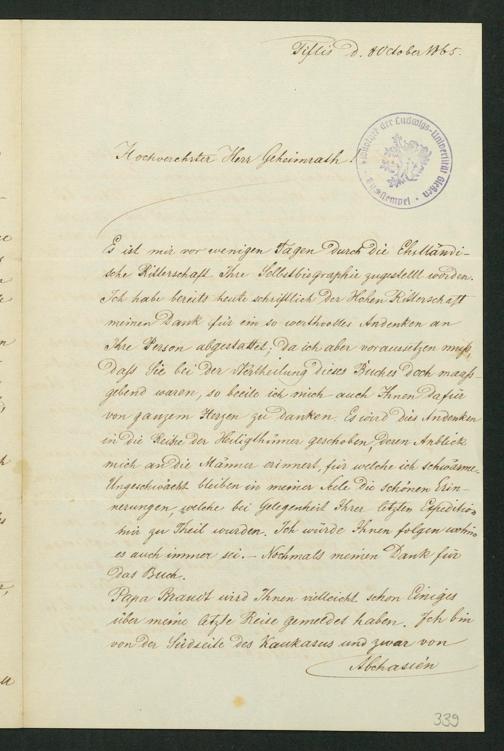 Tiflis d. 8 October 1865.
Hochverehrter Herr Geheimrath!
Bibliothek der Ludwigs-Universität Gießen
Es ist mir vor wenigen Tagen durch die Ehstländi-
sche Ritterschaft Ihre Selbstbiographie zugestellt worden.
Ich habe bereits heute schriftlich der Hohen Ritterschaft
meinen Dank für ein so werthvolles Andenken an
Ihre Person abgestattet; da ich aber voraussetzen muß,
daß Sie bei der Vertheilung dieses Buches doch maaß-
gebend waren, so beeile ich mich auch Ihnen dafür
von ganzem Herzen zu danken. Es wird dies Andenken
in die Reihe der Heiligthümer geschoben, deren Anblick
mich an die Männer erinnert, für welche ich schwärme.
Ungeschwächt bleiben in meiner Sele die schönen Erin-
nerungen, welche bei Gelegenheit Ihrer letzten Expedition
mir zu Theil wurden. Ich würde Ihnen folgen wohin
es auch immer sei. – Nochmals meinen Dank für
das Buch.
Papa Brandt wird Ihnen vielleicht schon Einiges
über meine letzte Reise gemeldet haben. Ich bin
von der Südseite des Kaukasus und zwar von
Abchasien
339